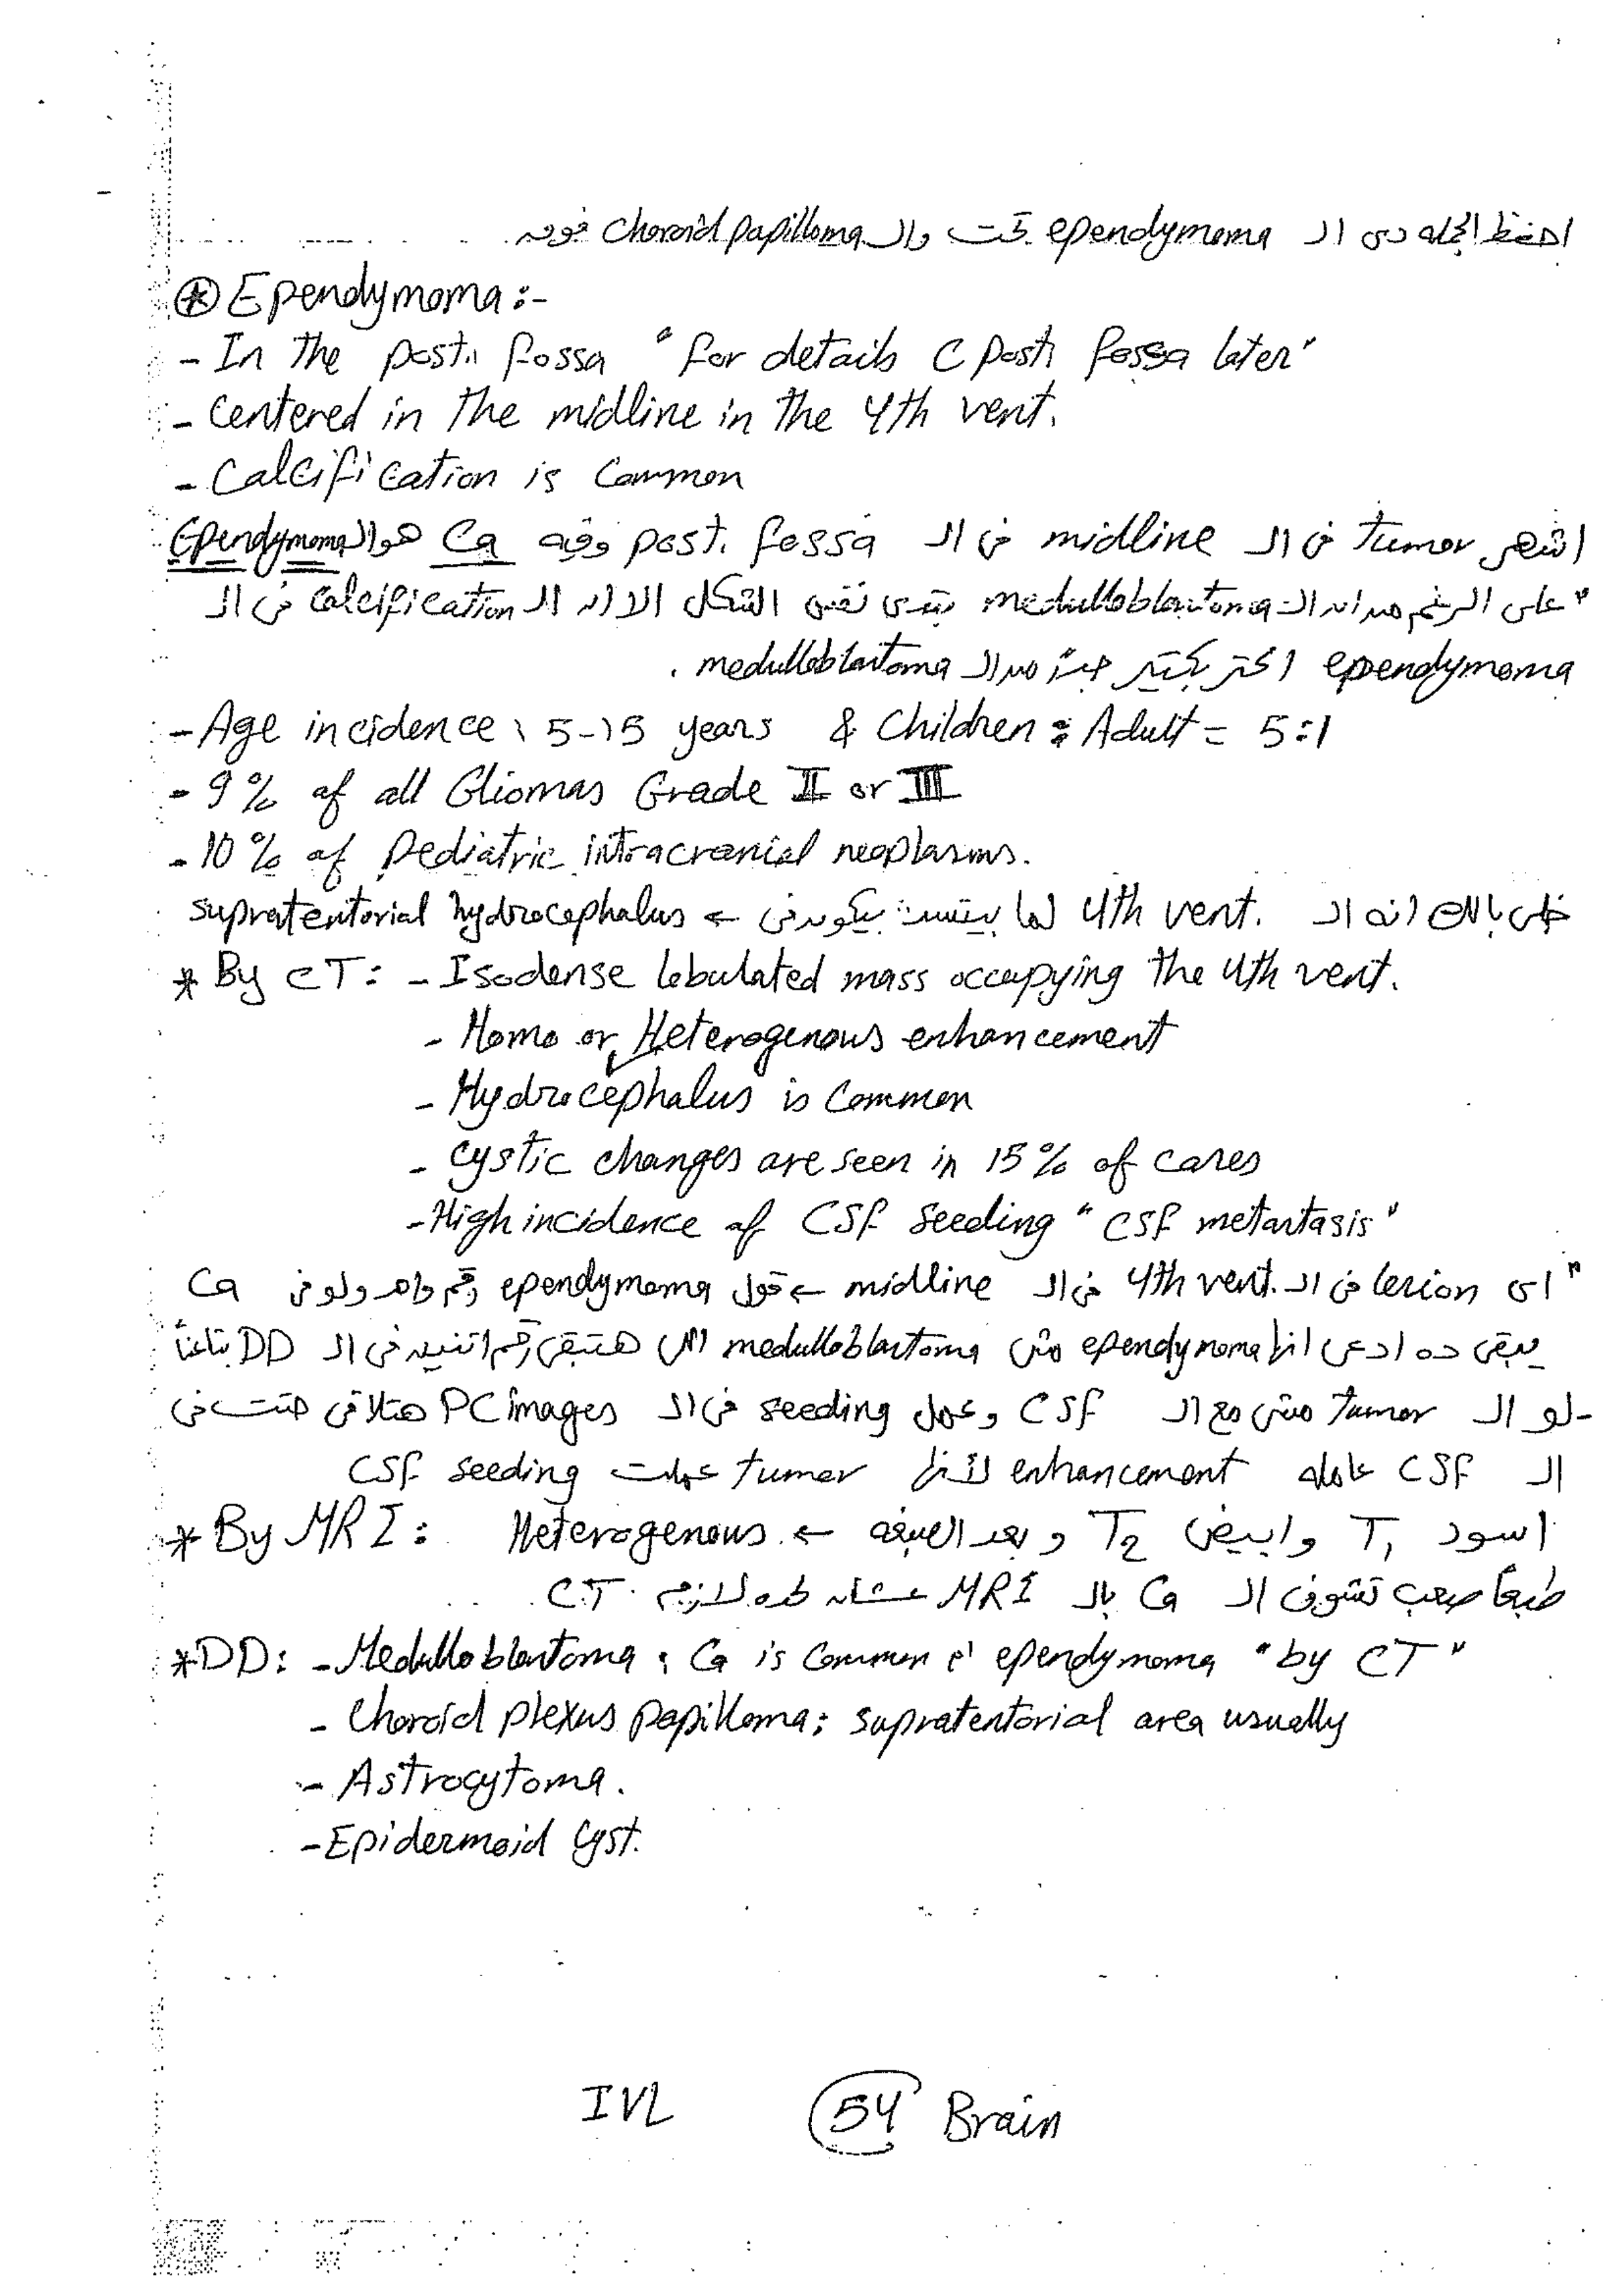 احفظ الجملة دى ال ependymoma تحت وال choroid papilloma فوق
⊛ Ependymoma :-
- In the post. fossa "for details C post. fossa later"
- Centered in the midline in the 4th vent.
- Calcification is Common
اشهر tumor فى ال midline فى ال post. fossa وفيه Ca هو ال Ependymoma
"على الرغم من ان ال medulloblastoma بتدى نفس الشكل الا ان ال calcification فى ال
ependymoma اكتر بكتير جداً من ال medulloblastoma .
- Age incidence : 5-15 years & Children : Adult = 5:1
- 9% of all Gliomas Grade II or III
- 10% of Pediatric intracranial neoplasms.
خلى بالك انه ال 4th vent. لما بيتسد بيكون فى ← supratentorial hydrocephalus
* By CT: - Isodense lobulated mass occupying the 4th vent.
- Homo or Heterogenous enhancement
- Hydrocephalus is Common
- Cystic changes are seen in 15% of cases
- High incidence of CSF seeding "CSF metastasis"
"اى lesion فى ال 4th vent. فى ال midline ← قول ependymoma رقم واحد ولو فى Ca
يبقى ده ادعى انها ependymoma مش medulloblastoma اللى هتبقى رقم اتنين فى ال DD بتاعنا
- لو ال tumor مشى مع ال CSF وعمل seeding فى ال PC images هتلاقى حتت فى
ال CSF عامله enhancement لأنها tumor عملت CSF seeding
* By MRI: اسود T1 وابيض T2 و بعد الصبغه ← Heterogenous
طبعاً صعب تشوف ال Ca بال MRI عشان كده لازم CT.
*DD: - Medulloblastoma : Ca is Common c̄ ependymoma "by CT"
- Choroid plexus papilloma: supratentorial area usually
- Astrocytoma.
- Epidermoid Cyst.
IVL 54 Brain